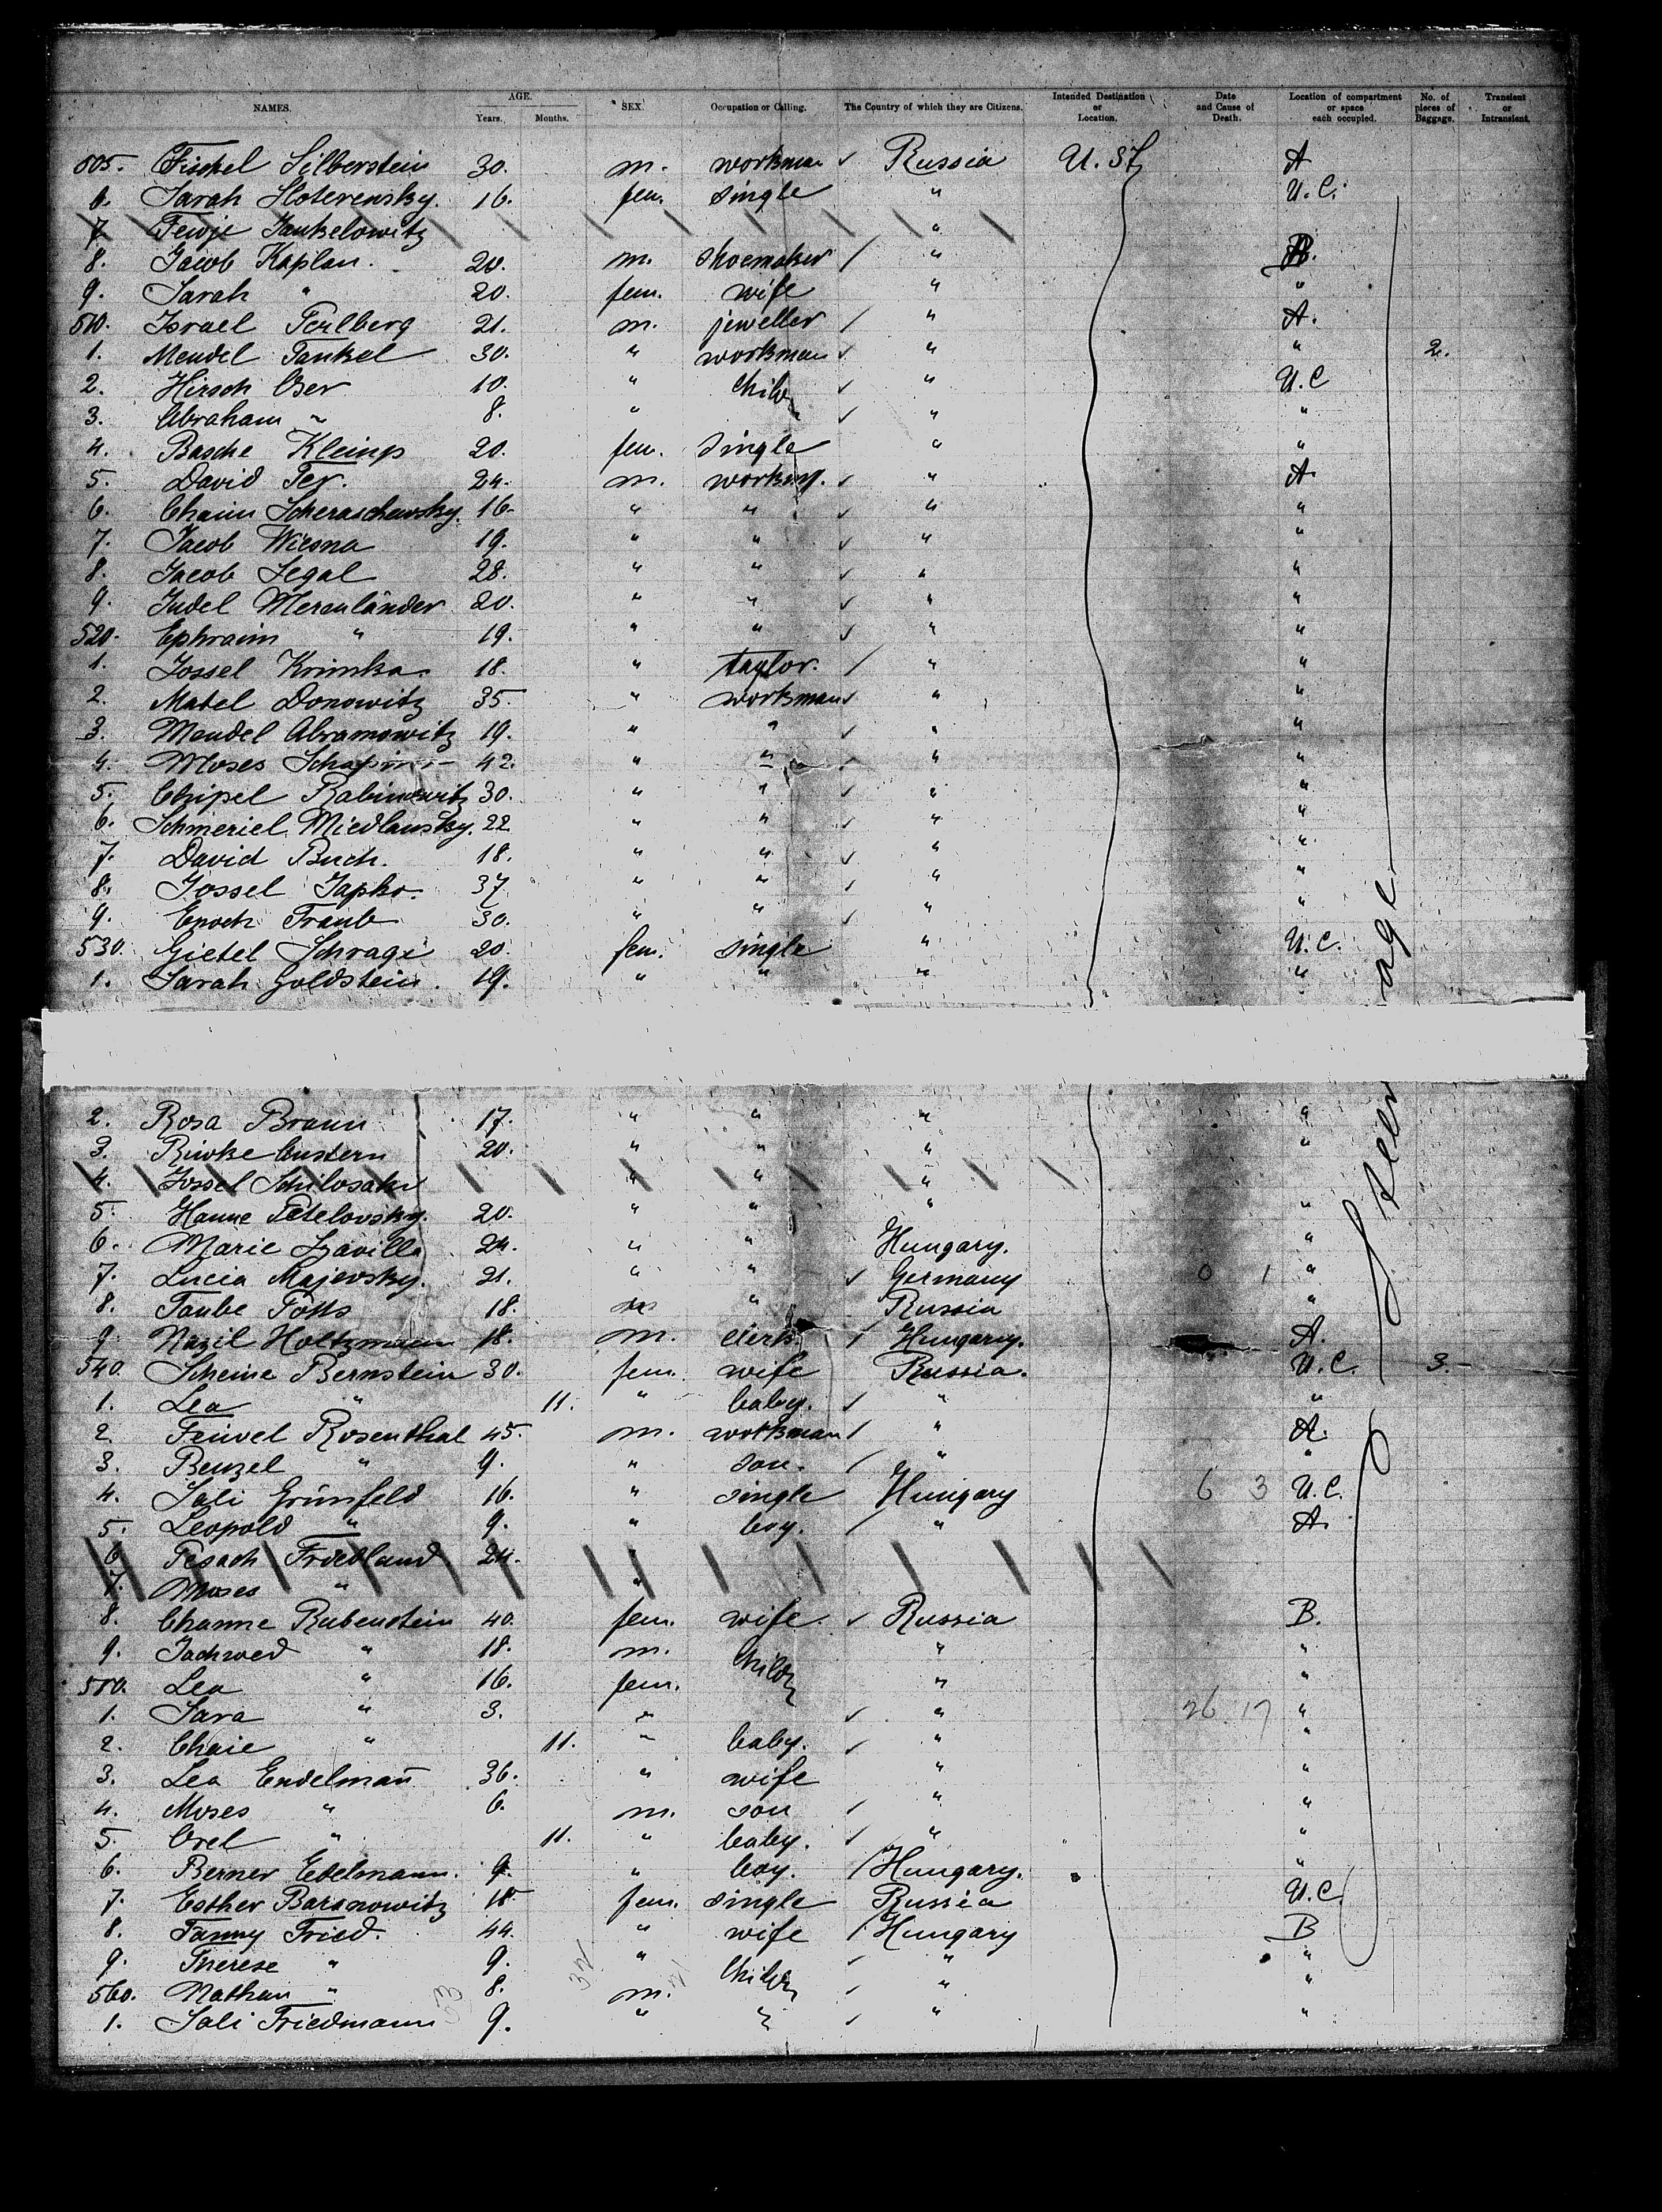 NAMES. AGE. Years. Months. SEX. Occupation or Calling. The Country of which they are Citizens. Intended Destination or Location. Date and Cause of Death. Location of compartment or space each occupied. No. of pieces of Baggage. Transient or Intransient.
505. Fischel Silberstein 30. m. workman ✓ Russia U. St. A
6. Sarah 16. fem. single " U.C.
7. Feivje Jankelowitz "
8. Jacob Kaplan. 20. m. shoemaker / " B.
9. Sarah " 20. fem. wife " "
510. Israel Perlberg 21. m. jeweller / " A.
1. Mendel Jankel 30. " workman ✓ " " 2.
2. Hirsch Oser 10. " child ✓ " U.C
3. Abraham " 8. " ✓ " "
4. Basche 20. fem. single " "
5. David 24. m. workmn. ✓ " A
6. Chaim Scheraschewsky. 16. " " ✓ " "
7. Jacob Wiesna 19. " " ✓ " "
8. Jacob Segal 28. " " ✓ " "
9. Judel Merenländer 20. " " ✓ " "
520. Ephraim " 19. " " ✓ " "
1. Jossel Krimka 18. " taylor. / " "
2. Matel Donowitz 35. " workman ✓ " "
3. Mendel Abramowitz 19. " " ✓ " "
4. Moses Schapiro 42. " " ✓ " "
5. Rabinowitz 30. " " ✓ " "
6. Schmeriel Miedlansky. 22 " " ✓ " "
7. David Buch. 18. " " ✓ " "
8. Jossel 37 " " ✓ " "
9. Enoch Traub 30. " " ✓ " "
530. Gietel Schragi 20. fem. single " U.C.
1. Sarah Goldstein. 19. " " " "
2. Rosa Braun 17. " " " "
3. Riwke 20. " " " "
4. Jossel " " "
5. Hanne Petelovsky. 20. " " " "
6. Marie 24. " " Hungary. "
7. Lucia Majevsky. 21. " " ✓ Germany 0 1 "
8. Taube 18. " Russia "
9. Nazil Holtzmann 18. m. clerk / Hungary. A.
540. Scheine Bernstein 30. fem. wife Russia. U.C. 3.
1. Lea " 11. " baby. ✓ " "
2. Feiwel Rosenthal 45. m. workman / " A.
3. Benzel " 9. " son. / " "
4. Sali Grünfeld 16. " single Hungary 6 3 U.C.
5. Leopold " 9. " boy. / " A.
6. Pesach Friedland 24. "
7. Moses " "
8. Channe Rubenstein 40. fem. wife. ✓ Russia B.
9. Jachwed " 18. m. childr " "
550. Lea " 16. fem. " "
1. Sara " 3. " ✓ " 26 17 "
2. Chaie " 11. " baby. ✓ " "
3. Lea Endelmann 36. " wife " "
4. Moses " 6. m. son / " "
5. Orel " 11. " baby. ✓ " "
6. Berner Edelmann. 9. " boy. / Hungary. "
7. Esther Baranowitz 18 fem. single Russia U.C.
8. Fanny Fried. 44. " wife / Hungary B
9. Therese " 9. " childr ✓ " "
560. Nathan " 8. m. ✓ " "
1. Sali Friedmann 9. " " ✓ " "